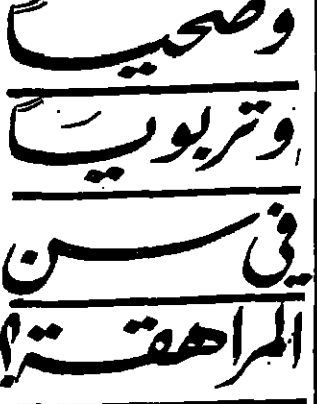 وصحياً
وتربوياً
في سن
المراهقة؟